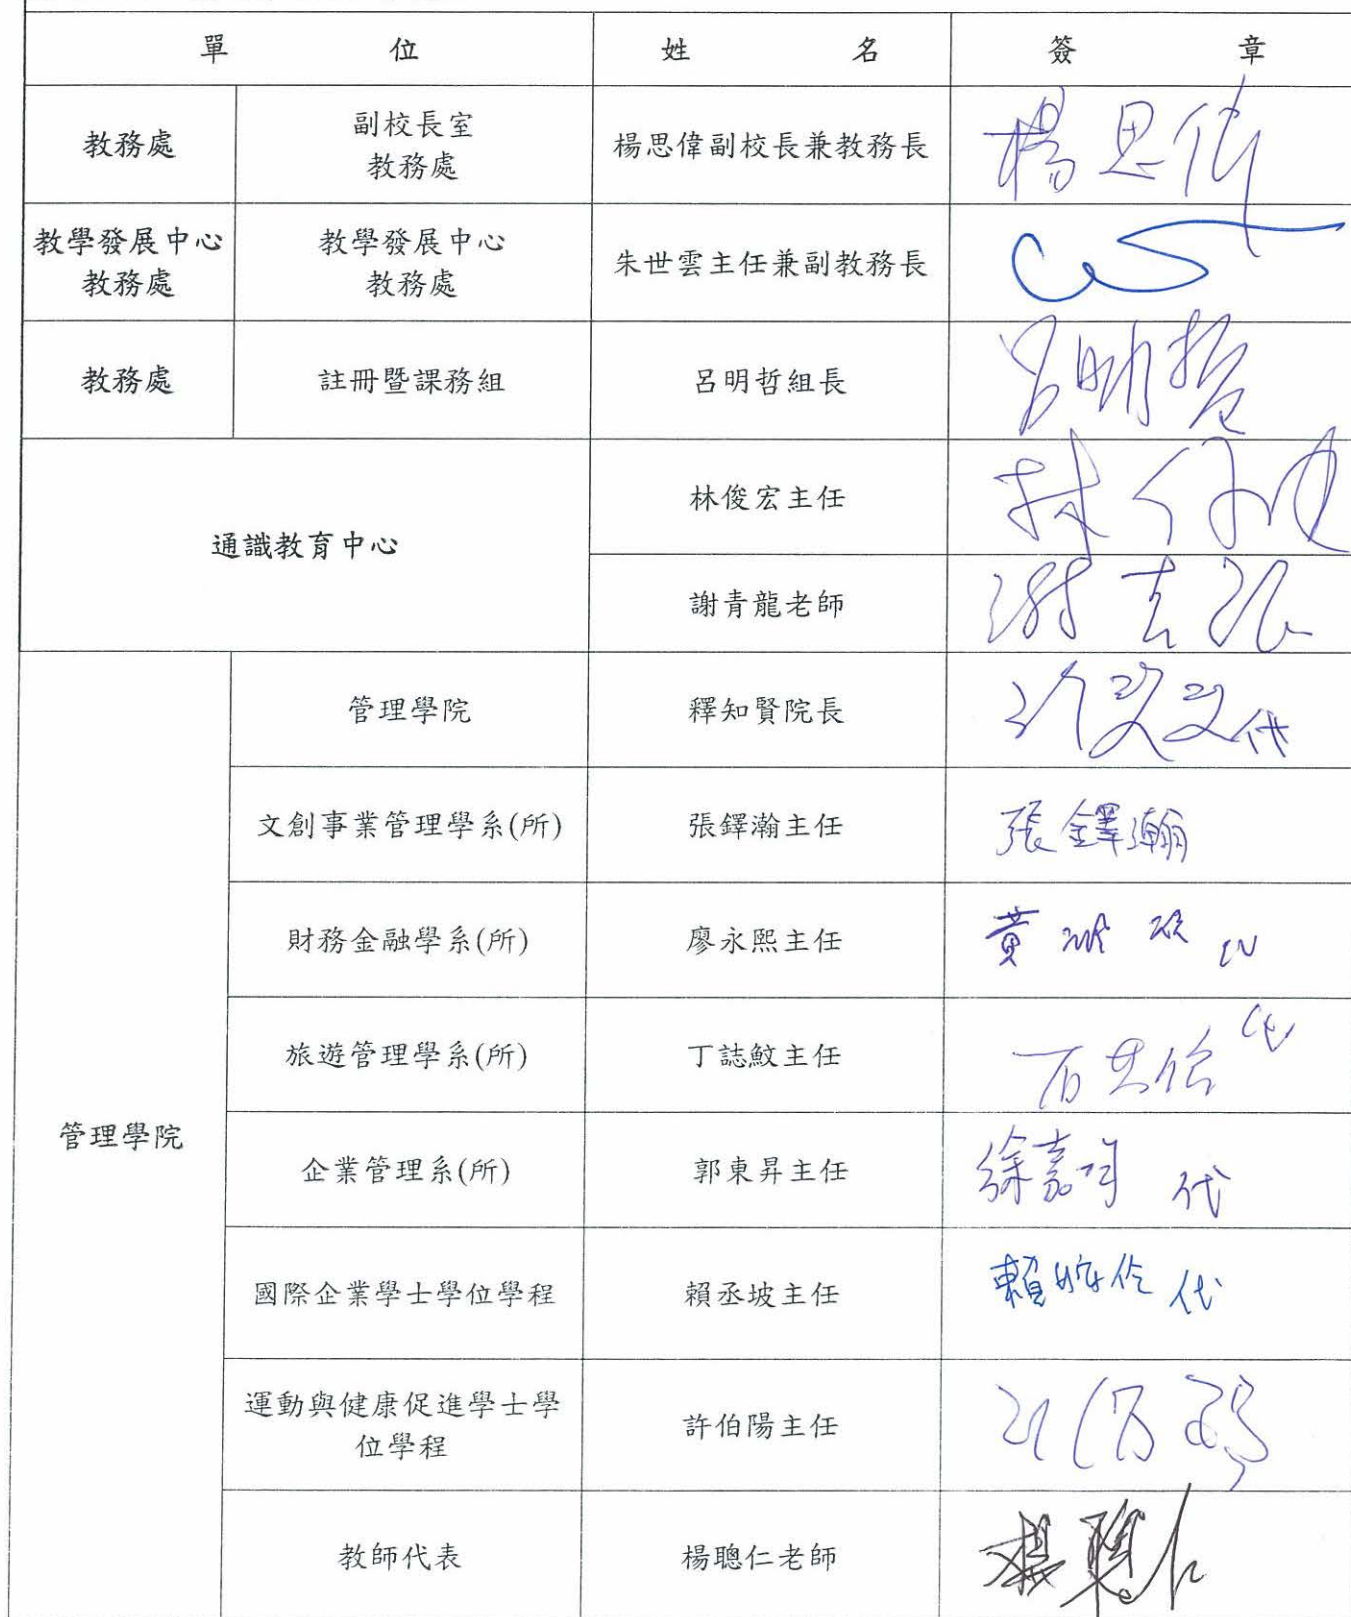 單 位 姓 名 簽 章
教務處 副校長室 教務處 楊思偉副校長兼教務長 楊思偉
教學發展中心 教務處 教學發展中心 教務處 朱世雲主任兼副教務長
教務處 註冊暨課務組 呂明哲組長 呂明哲
通識教育中心 林俊宏主任 林俊宏
謝青龍老師 謝青龍
管理學院 管理學院 釋知賢院長 代
文創事業管理學系(所) 張鐸瀚主任 張鐸瀚
財務金融學系(所) 廖永熙主任 黃 代
旅遊管理學系(所) 丁誌魰主任 代
企業管理系(所) 郭東昇主任 徐嘉明 代
國際企業學士學位學程 賴丞坡主任 賴 代
運動與健康促進學士學位學程 許伯陽主任 許伯陽
教師代表 楊聰仁老師 楊聰仁